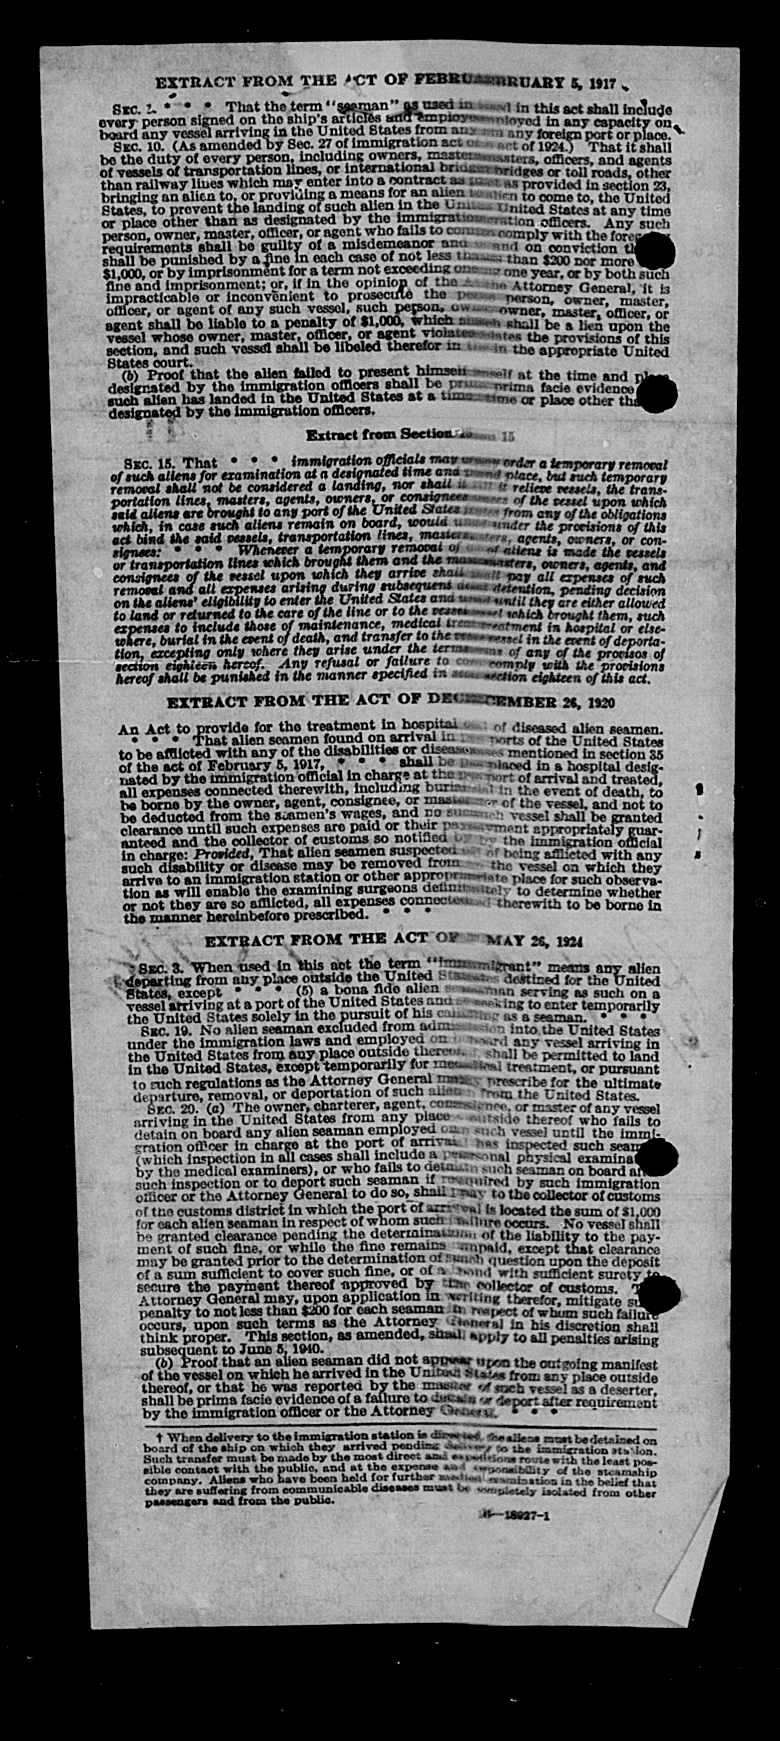 EXTRACT FROM THE ACT OF FEBRUARY 5, 1917
SEC. 1. * * * That the term "seaman" as used in this act shall include
every person signed on the ship's articles and employed in any capacity on
board any vessel arriving in the United States from any foreign port or place.
SEC. 10. (As amended by Sec. 27 of immigration act of 1924.) That it shall
be the duty of every person, including owners, masters, officers, and agents
of vessels of transportation lines, or international bridges or toll roads, other
than railway lines which may enter into a contract as provided in section 23,
bringing an alien to, or providing a means for an alien to come to, the United
States, to prevent the landing of such alien in the United States at any time
or place other than as designated by the immigration officers. Any such
person, owner, master, officer, or agent who fails to comply with the
requirements shall be guilty of a misdemeanor and on conviction
shall be punished by a fine in each case of not less than $200 nor more
$1,000, or by imprisonment for a term not exceeding one year, or by both such
fine and imprisonment; or, if in the opinion of the Attorney General, it is
impracticable or inconvenient to prosecute the person, owner, master,
officer, or agent of any such vessel, such person, owner, master, officer, or
agent shall be liable to a penalty of $1,000, which shall be a lien upon the
vessel whose owner, master, officer, or agent violates the provisions of this
section, and such vessel shall be libeled therefor in the appropriate United
States court.
(b) Proof that the alien failed to present himself at the time and place
designated by the immigration officers shall be prima facie evidence
such alien has landed in the United States at a time or place other
designated by the immigration officers.
Extract from Section 15
SEC. 15. That * * * immigration officials may order a temporary removal
of such aliens for examination at a designated time and place, but such temporary
removal shall not be considered a landing, nor shall it relieve vessels, the trans-
portation lines, masters, agents, owners, or consignees of the vessel upon which
said aliens are brought to any port of the United States from any of the obligations
which, in case such aliens remain on board, would under the provisions of this
act bind the said vessels, transportation lines, masters, agents, owners, or con-
signees: * * * Whenever a temporary removal of aliens is made the vessels
or transportation lines which brought them and the masters, owners, agents, and
consignees of the vessel upon which they arrive shall pay all expenses of such
removal and all expenses arising during subsequent detention, pending decision
on the aliens' eligibility to enter the United States and until they are either allowed
to land or returned to the care of the line or to the vessel which brought them, such
expenses to include those of maintenance, medical treatment in hospital or else-
where, burial in the event of death, and transfer to the vessel in the event of deporta-
tion, excepting only where they arise under the terms of any of the provisos of
section eighteen hereof. Any refusal or failure to comply with the provisions
hereof shall be punished in the manner specified in section eighteen of this act.
EXTRACT FROM THE ACT OF DECEMBER 26, 1920
An Act to provide for the treatment in hospital of diseased alien seamen.
* * * That alien seamen found on arrival in ports of the United States
to be afflicted with any of the disabilities or diseases mentioned in section 35
of the act of February 5, 1917, * * * shall be placed in a hospital desig-
nated by the immigration official in charge at the port of arrival and treated,
all expenses connected therewith, including burial in the event of death, to
be borne by the owner, agent, consignee, or master of the vessel, and not to
be deducted from the seamen's wages, and no such vessel shall be granted
clearance until such expenses are paid or their payment appropriately guar-
anteed and the collector of customs so notified by the immigration official
in charge: Provided, That alien seamen suspected of being afflicted with any
such disability or disease may be removed from the vessel on which they
arrive to an immigration station or other appropriate place for such observa-
tion as will enable the examining surgeons definitely to determine whether
or not they are so afflicted, all expenses connected therewith to be borne in
the manner hereinbefore prescribed. * * *
EXTRACT FROM THE ACT OF MAY 26, 1924
SEC. 3. When used in this act the term "Immigrant" means any alien
departing from any place outside the United States destined for the United
States, except * * * (5) a bona fide alien seaman serving as such on a
vessel arriving at a port of the United States and seeking to enter temporarily
the United States solely in the pursuit of his calling as a seaman. * * *
SEC. 19. No alien seaman excluded from admission into the United States
under the immigration laws and employed on board any vessel arriving in
the United States from any place outside thereof, shall be permitted to land
in the United States, except temporarily for medical treatment, or pursuant
to such regulations as the Attorney General may prescribe for the ultimate
departure, removal, or deportation of such alien from the United States.
SEC. 20. (a) The owner, charterer, agent, consignee, or master of any vessel
arriving in the United States from any place outside thereof who fails to
detain on board any alien seaman employed on such vessel until the immi-
gration officer in charge at the port of arrival has inspected such seaman
(which inspection in all cases shall include a personal physical examination
by the medical examiners), or who fails to detain such seaman on board after
such inspection or to deport such seaman if required by such immigration
officer or the Attorney General to do so, shall pay to the collector of customs
of the customs district in which the port of arrival is located the sum of $1,000
for each alien seaman in respect of whom such failure occurs. No vessel shall
be granted clearance pending the determination of the liability to the pay-
ment of such fine, or while the fine remains unpaid, except that clearance
may be granted prior to the determination of such question upon the deposit
of a sum sufficient to cover such fine, or of a bond with sufficient surety to
secure the payment thereof approved by the collector of customs.
Attorney General may, upon application in writing therefor, mitigate such
penalty to not less than $200 for each seaman in respect of whom such failure
occurs, upon such terms as the Attorney General in his discretion shall
think proper. This section, as amended, shall apply to all penalties arising
subsequent to June 5, 1940.
(b) Proof that an alien seaman did not appear upon the outgoing manifest
of the vessel on which he arrived in the United States from any place outside
thereof, or that he was reported by the master of such vessel as a deserter,
shall be prima facie evidence of a failure to detain or deport after requirement
by the immigration officer or the Attorney General. * * *
† When delivery to the immigration station is directed, the aliens must be detained on
board of the ship on which they arrived pending delivery to the immigration station.
Such transfer must be made by the most direct and expeditious route with the least pos-
sible contact with the public, and at the expense and responsibility of the steamship
company. Aliens who have been held for further medical examination in the belief that
they are suffering from communicable diseases must be completely isolated from other
passengers and from the public.
16—18927-1